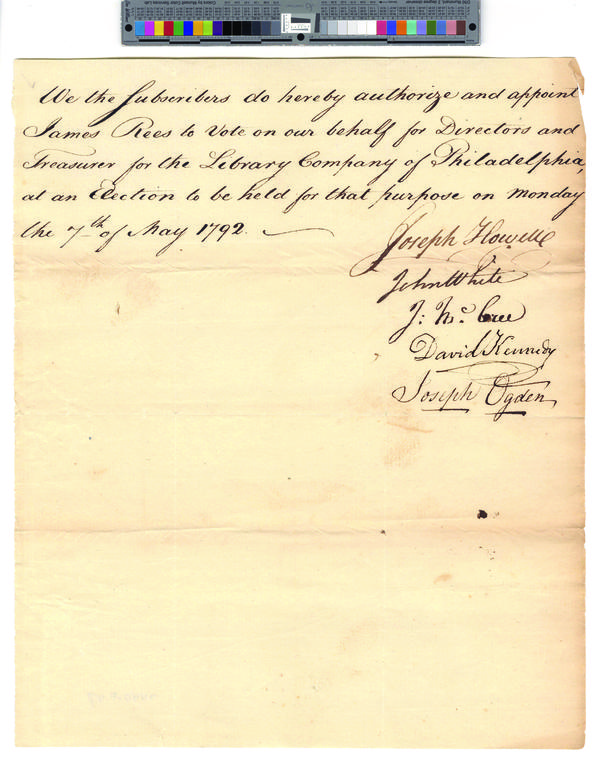 We the Subscribers do hereby authorize and appoint
James Rees to Vote on our behalf for Directors and
Treasurer for the Library Company of Philadelphia,
at an Election to be held for that purpose on Monday
the 7th of May 1792.
Joseph Howell
John White
J: Mc
David Kennedy
Joseph Ogden